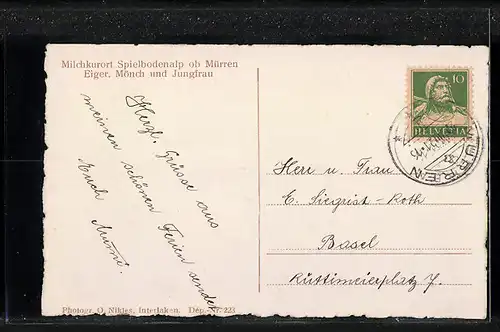 Milchkurort Spielbodenalp ob Mürren
Eiger, Mönch und Jungfrau
Herzl. Grüsse aus
meinen schönen Ferien sendet
Euch
10
HELVETIA
MÜRREN
Herr u. Frau
E. Siegrist-Roth
Basel
Rüttimeierplatz 7.
Photogr. O. Nikles, Interlaken. Dép. Nr. 223